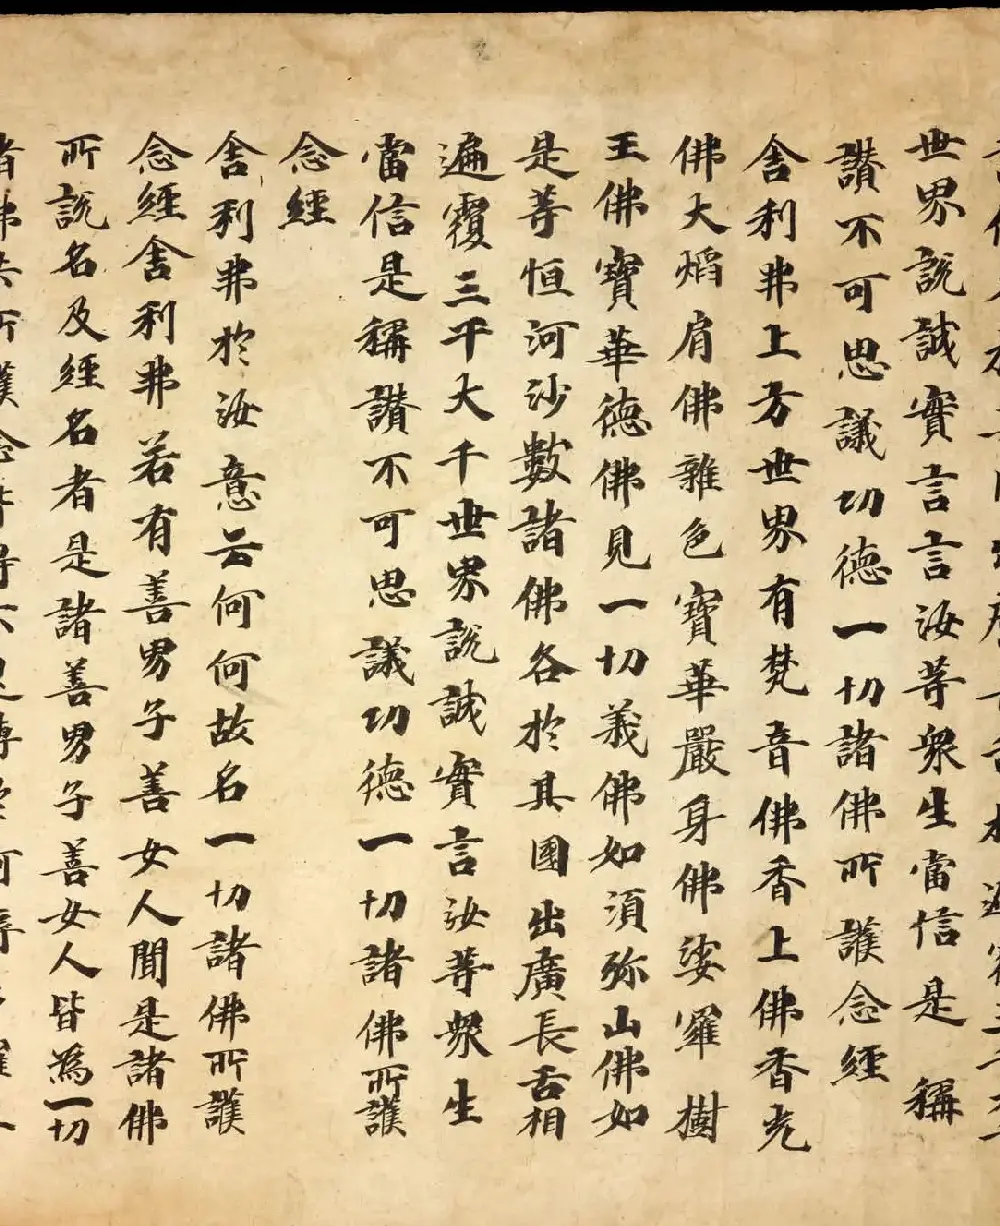 世界說誠實言言汝等衆生當信是稱
讃不可思議功德一切諸佛所護念經
舍利弗上方世界有梵音佛香上佛香光
佛大焰肩佛雜色寶華嚴身佛娑羅樹
王佛寶華德佛見一切義佛如須弥山佛如
是等恒河沙數諸佛各於其國出廣長舌相
遍覆三千大千世界說誠實言汝等衆生
當信是稱讃不可思議功德一切諸佛所護
念經
舍利弗於汝意云何何故名一切諸佛所護
念經舍利弗若有善男子善女人聞是諸佛
所說名及經名者是諸善男子善女人皆為一切